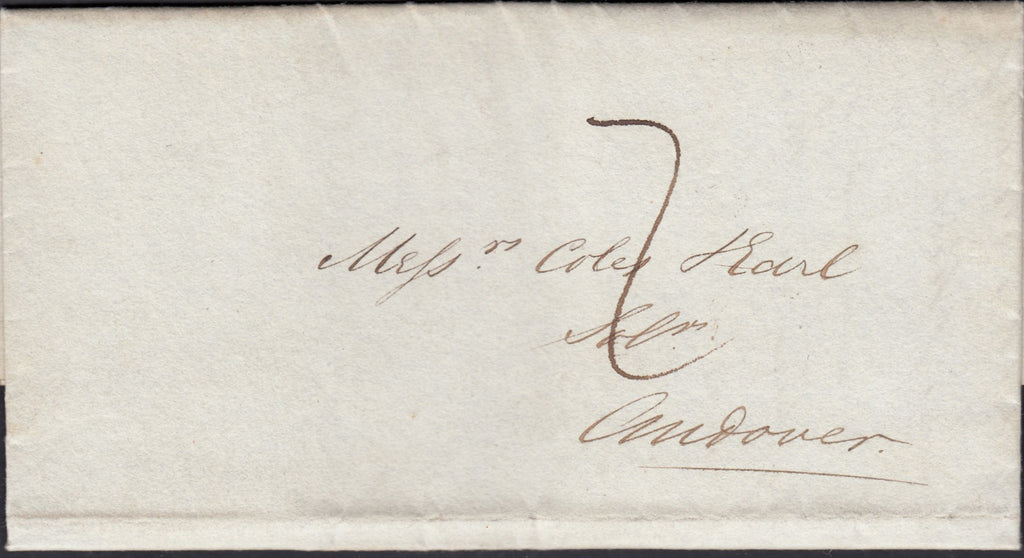 7
Messrs. Coles & Earl
Solrs.
Andover.